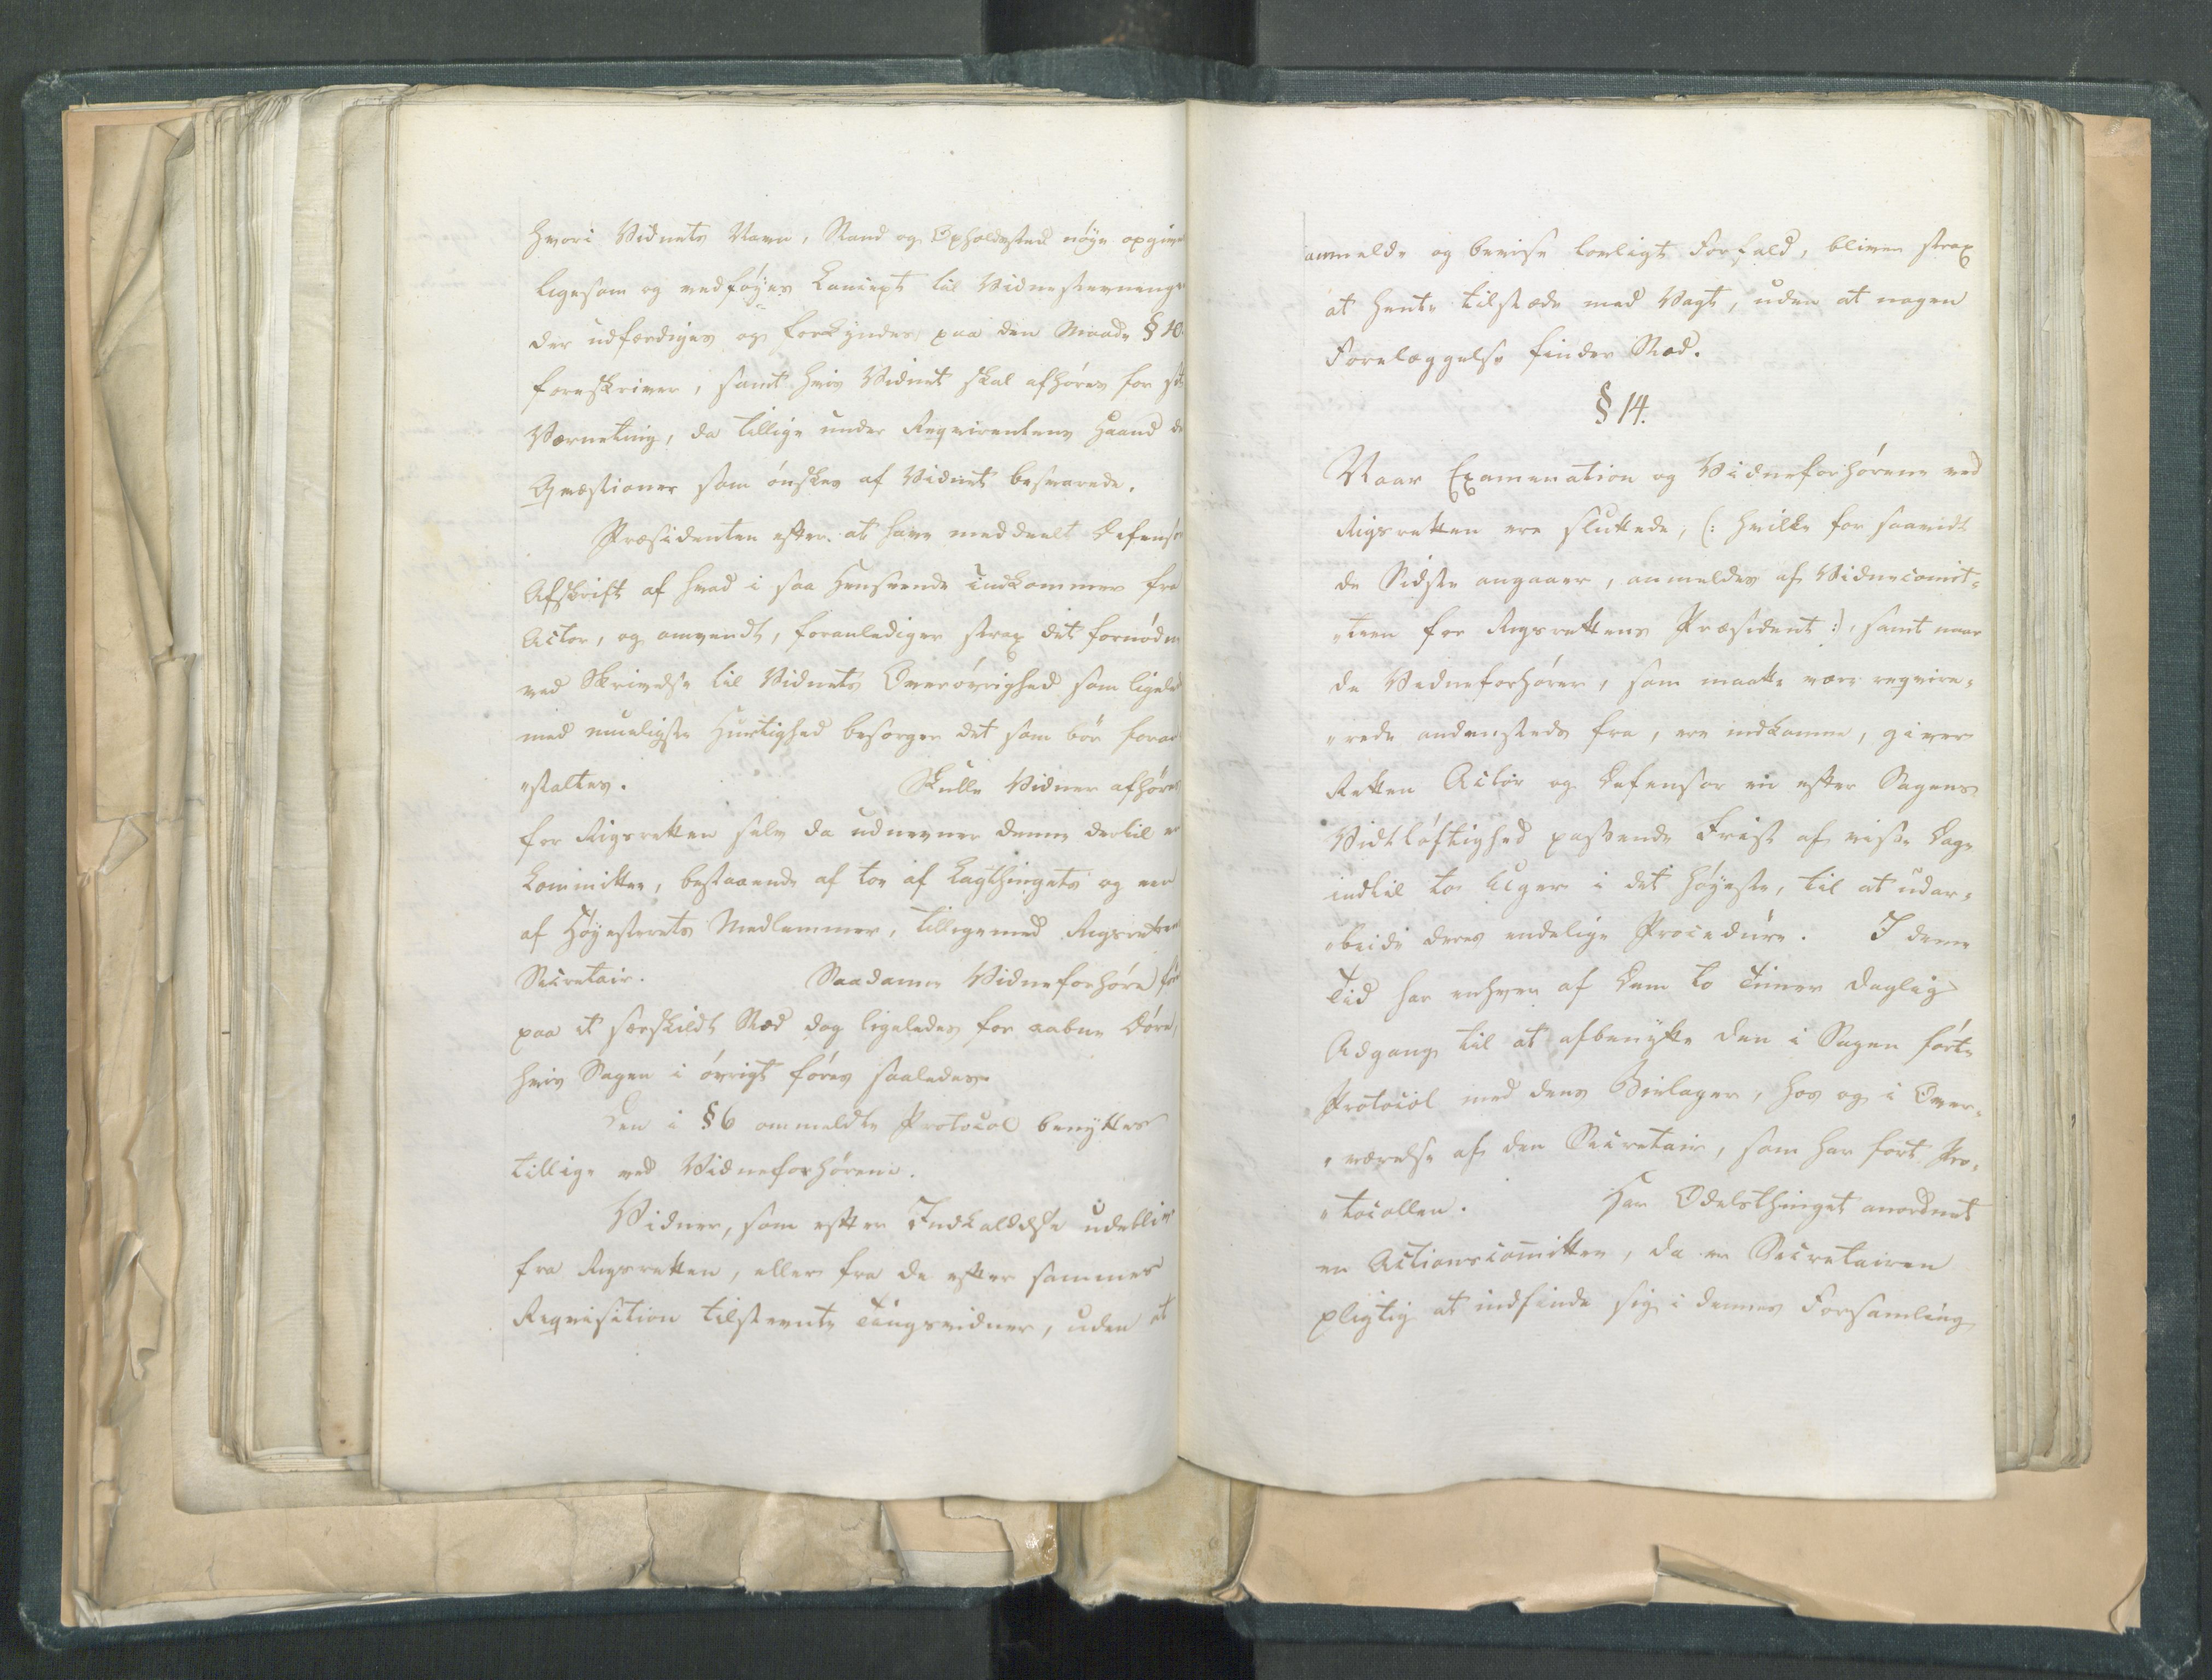 hvori Vidnets Navn, Stand og Opholdssted nøye opgives
ligesom og vedføyes Concept til Vidnestevningen
der udfærdiges og forkyndes paa den Maade § 10
foreskriver, samt hvis Vidnet skal afhøres for sit
Værneting, da tillige under Reqvirentens Haand de
Qvæstioner som ønskes af Vidnet besvarede.
Præsidenten efter at have meddeelt Defensor
Afskrift af hvad i saa Henseende indkommer fra
Actor, og omvendt, foranlediger strax det fornødne
ved Skrivelse til Vidnets Overøvrighed som ligeledes
med mueligste Hurtighed besørger det som bør foran-
"staltes. Skulle Vidner afhøres
for Rigsretten selv da udnevner denne dertil en
Committee, bestaaende af toe af Lagthingets og een
af Høyesterets Medlemmer, tilligemed Rigsrettens
Secretair. Saadanne Vidneforhøre
paa et særskildt Stæd dog ligeledes for aabne Døre,
hvis Sagen i øvrigt føres saaledes.
Den i § 6 ommeldte Protocol benyttes
tillige ved Vidneforhørene.
Vidner, som efter Indkaldelse udebliver
fra Rigsretten, eller fra de efter sammes
Reqvisition tilstevnte Tingsvidner, uden at
anmelde og bevise lovligt Forfald, bliver strax
at hente tilstæde med Vagt, uden at nogen
Forelæggelse finder Sted.
§ 14.
Naar Examination og Vidneforhørene ved
Rigsretten ere sluttede, (: hvilke for saavidt
de Sidste angaaer, anmeldes af Vidnecomit-
"teen for Rigsrettens Præsident :), samt naar
de Vidneforhører, som maatte være reqvire-
"rede andensteds fra, ere indkomne, giver
Retten Actor og Defensor en efter Sagens
Vidtløftighed passende Frist af visse Dage
indtil to Uger i det høyeste, til at udar-
"beide deres endelige Procedure. I denne
Tid har enhver af Dem to Timer daglig
Adgang til at afbenytte den i Sagen førte
Protocol med dens Bielager, hos og i Over-
"værelse af den Secretair, som har ført Pro-
"tocollen. Har Odelsthinget anordnet
en Actionscomittee, da er Secretairen
pligtig at indfinde sig i dennes Forsamling